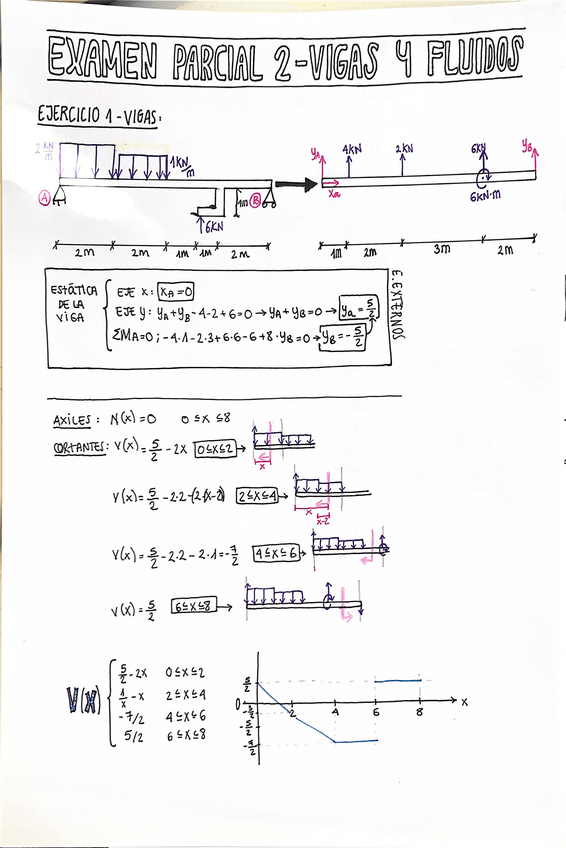 EXAMEN PARCIAL 2-VIGAS Y FLUIDOS
EJERCICIO 1-VIGAS:
2 kN/m
1 kN/m
A
B
1m
6KN
2m 2m 1m 1m 2m
yA 4KN 2KN 6KN yB
xa
6KN·m
1m 2m 3m 2m
ESTÁTICA DE LA VIGA
EJE X: XA=0
EJE Y: YA+YB-4-2+6=0→YA+YB=0→ya=5/2
ΣMA=0; -4·1-2·3+6·6-6+8·YB=0→YB=-5/2
E. EXTERNOS
AXILES: N(X)=0 0≤X≤8
CORTANTES: V(X)=5/2-2X 0≤X≤2→
x
V(X)=5/2-2·2-(1)(X-2) 2≤X≤4→
x
x-2
V(X)=5/2-2·2-2·1=-7/2 4≤X≤6→
V(X)=5/2 6≤X≤8→
V(X)
5/2-2X 0≤X≤2
1/x-X 2≤X≤4
-7/2 4≤X≤6
5/2 6≤X≤8
5/2
0 2 4 6 8 X
-3/2
-5/2
-7/2